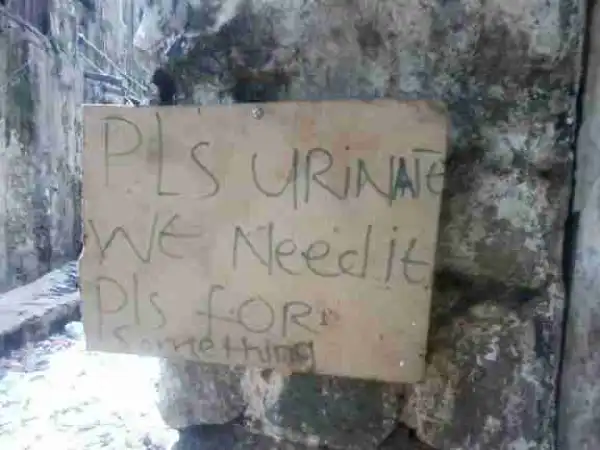 PLS URiNATE
WE Need it
Pls foR
Something